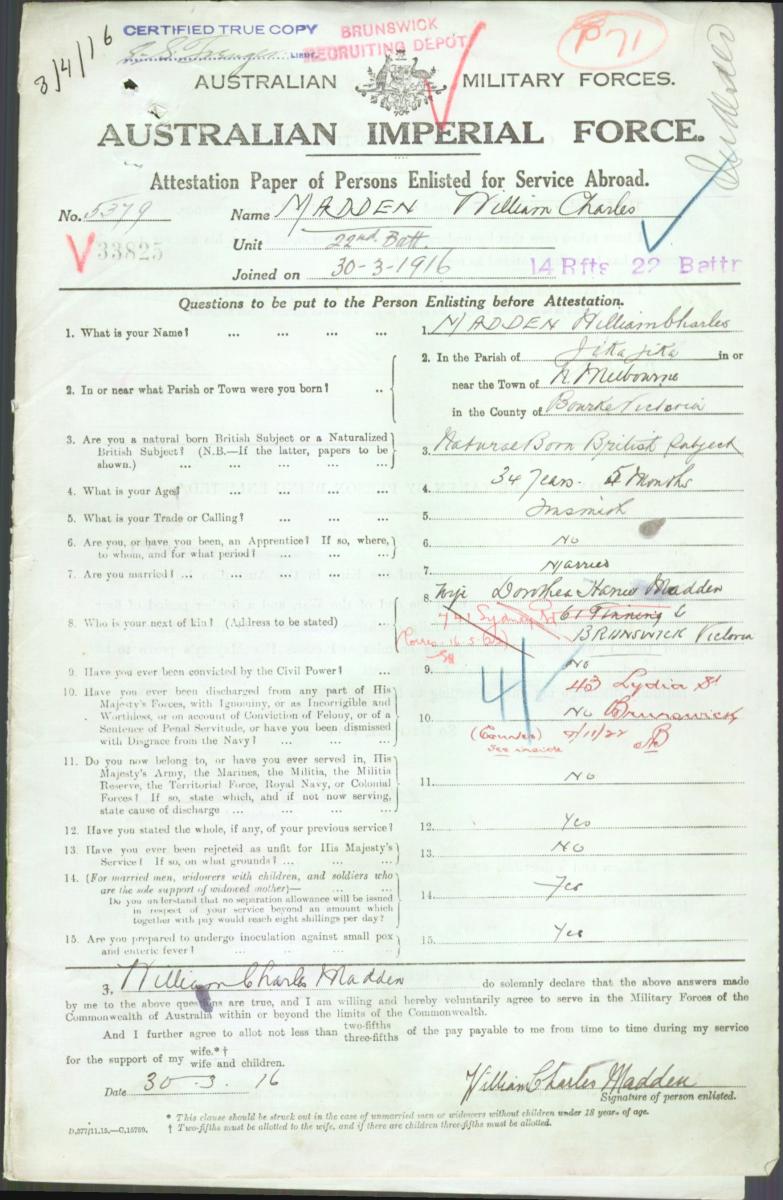 3/4/16
CERTIFIED TRUE COPY
LIEUT.
BRUNSWICK
RECRUITING DEPOT
P71
AUSTRALIAN MILITARY FORCES.
AUSTRALIAN IMPERIAL FORCE.
Attestation Paper of Persons Enlisted for Service Abroad.
No. 5379 Name MADDEN William Charles
33825
Unit 22nd Batt.
Joined on 30-3-1916
14 Rfts 22 Battn
Questions to be put to the Person Enlisting before Attestation.
1. What is your Name? ... ... ... ... 1. MADDEN William Charles
2. In or near what Parish or Town were you born? ...
2. In the Parish of Jika Jika in or
near the Town of N Melbourne
in the County of Bourke Victoria
3. Are you a natural born British Subject or a Naturalized
British Subject? (N.B.—If the latter, papers to be
shown.) ... ... ... ...
3. Natural Born British Subject
4. What is your Age? ... ... ... ... 4. 34 Years 5 Months
5. What is your Trade or Calling? ... ... ... 5. Tinsmith
6. Are you, or have you been, an Apprentice? If so, where,
to whom, and for what period? ... ... ...
6. No
7. Are you married? ... ... ... ... ... 7. Married
8. Who is your next of kin? (Address to be stated) ...
8. Wife Dorothea Madden
741 Sydney Rd 61 Tinning
BRUNSWICK Victoria
9. Have you ever been convicted by the Civil Power? ... 9. No
43 Lydia St
Brunswick
8/11/22
see inside
10. Have you ever been discharged from any part of His
Majesty's Forces, with Ignominy, or as Incorrigible and
Worthless, or on account of Conviction of Felony, or of a
Sentence of Penal Servitude, or have you been dismissed
with Disgrace from the Navy? ... ... ...
10. No
11. Do you now belong to, or have you ever served in, His
Majesty's Army, the Marines, the Militia, the Militia
Reserve, the Territorial Force, Royal Navy, or Colonial
Forces? If so, state which, and if not now serving,
state cause of discharge ... ... ... ...
11. No
12. Have you stated the whole, if any, of your previous service? 12. Yes
13. Have you ever been rejected as unfit for His Majesty's
Service? If so, on what grounds? ... ... ...
13. No
14. (For married men, widowers with children, and soldiers who
are the sole support of widowed mother)— ... ...
Do you understand that no separation allowance will be issued
in respect of your service beyond an amount which
together with pay would reach eight shillings per day?
14. Yes
15. Are you prepared to undergo inoculation against small pox
and enteric fever? ... ... ... ...
15. Yes
3. William Charles Madden do solemnly declare that the above answers made
by me to the above questions are true, and I am willing and hereby voluntarily agree to serve in the Military Forces of the
Commonwealth of Australia within or beyond the limits of the Commonwealth.
And I further agree to allot not less than two-fifths three-fifths of the pay payable to me from time to time during my service
for the support of my wife.*† wife and children.
Date 30-3-16 William Charles Madden
Signature of person enlisted.
* This clause should be struck out in the case of unmarried men or widowers without children under 18 years of age.
D.577/11.15.—C.15789. † Two-fifths must be allotted to the wife, and if there are children three-fifths must be allotted.